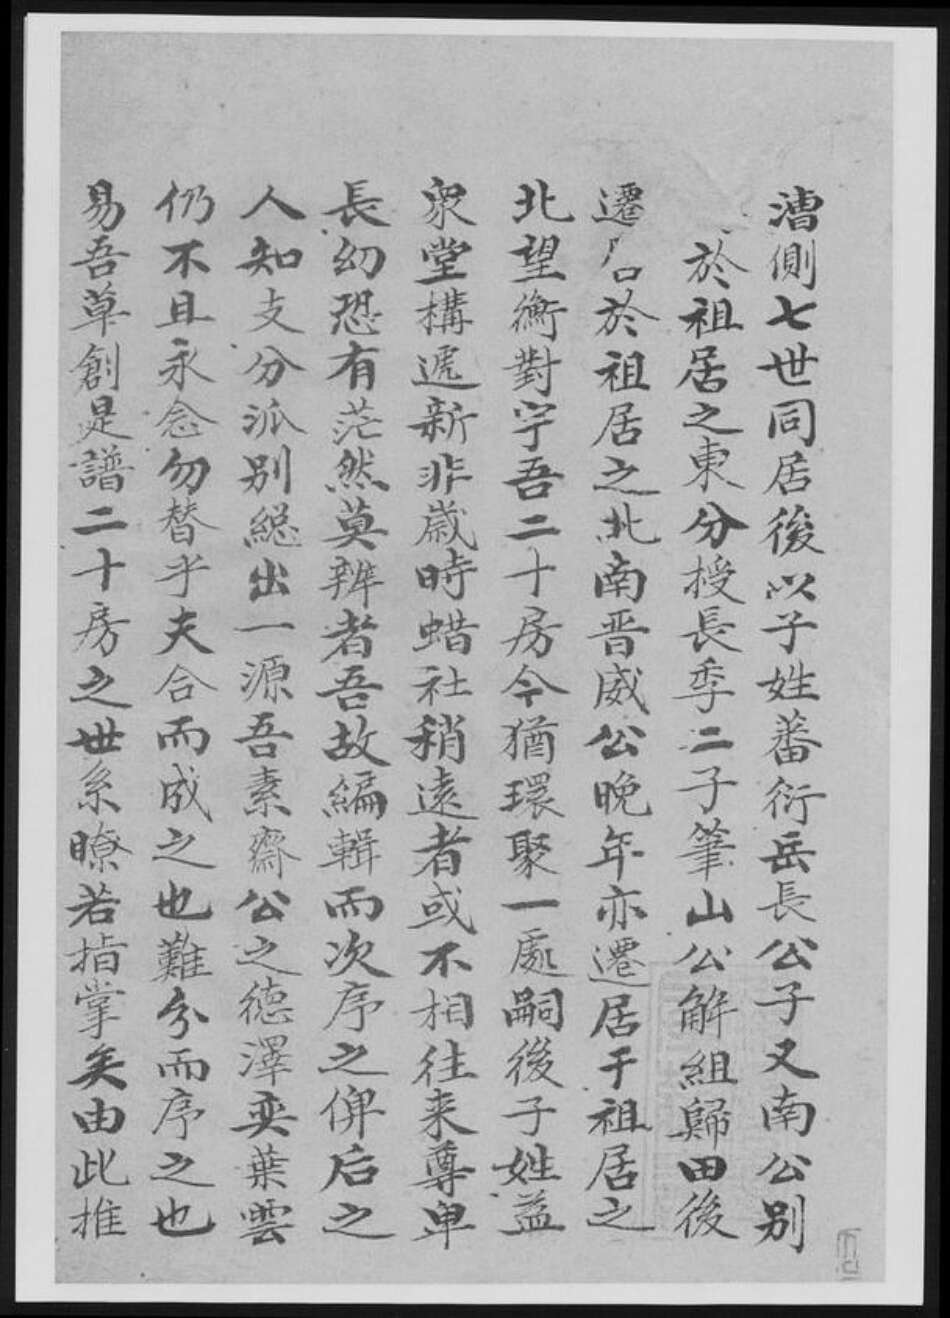 漕側七世同居後以子姓蕃衍岳長公子又南公別
於祖居之東分授長季二子筆山公解組歸田後
遷居於祖居之北南晋威公晚年亦遷居于祖居之
北望衡對宇吾二十房今猶環聚一處嗣後子姓益
衆堂構遞新非歲時蜡社稍遠者或不相往来尊卑
長幼恐有茫然莫辨者吾故編輯而次序之俾后之
人知支分派别緫出一源吾素齋公之德澤奕葉雲
仍不且永念勿替乎夫合而成之也難分而序之也
易吾草創是譜二十房之世系瞭若指掌矣由此推